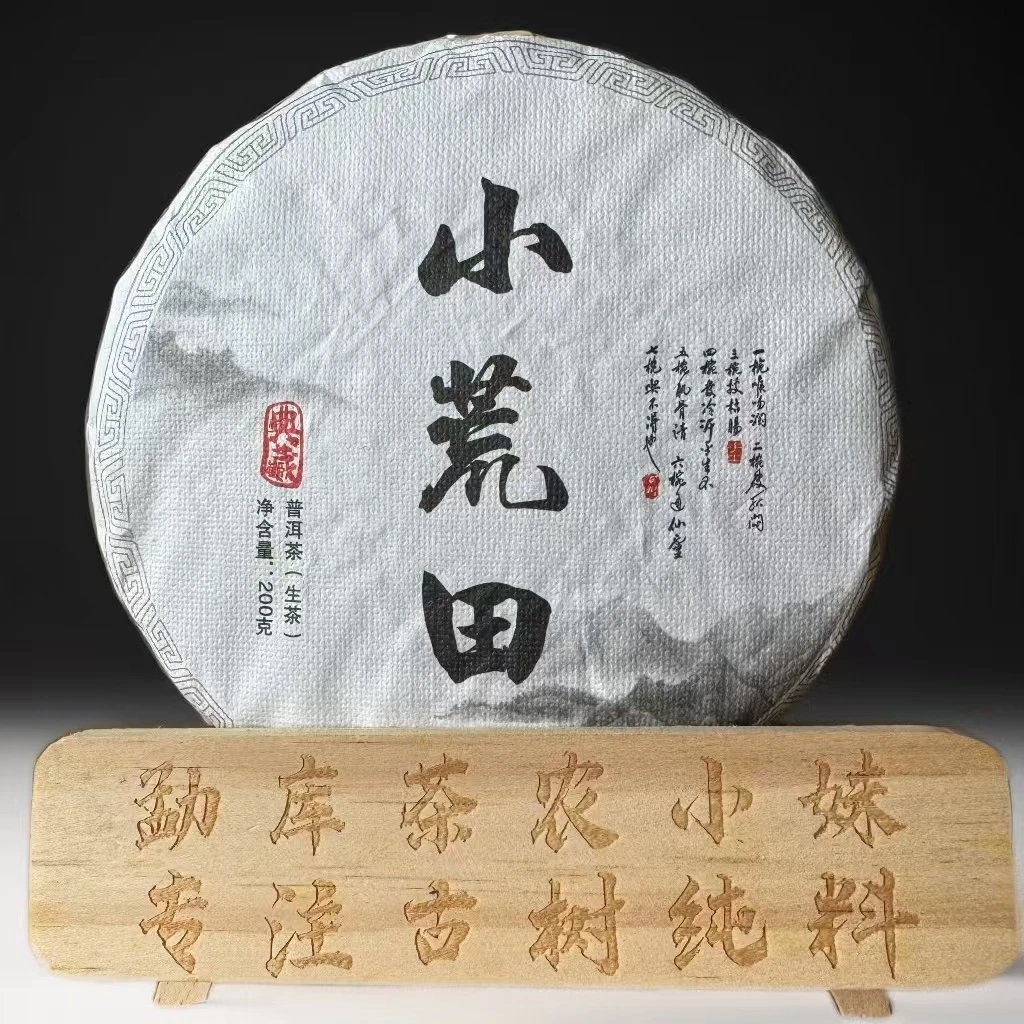 小荒田
一碗喉吻润 二碗破孤闷
三碗搜枯肠
五碗肌骨清 六碗通仙灵
七碗吃不得也
典藏
普洱茶（生茶）
净含量：200克
勐库茶农小妹
专注古树纯料